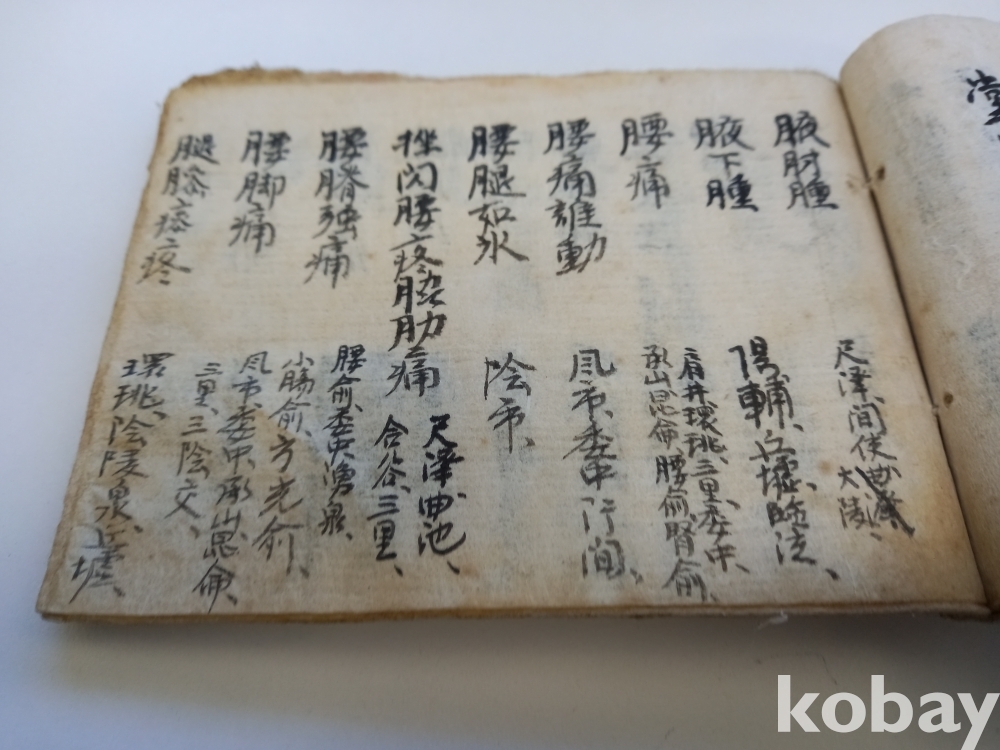 腋肘腫
尺澤、間使、
大陵、
腋下腫
陽輔、丘墟、臨泣、
腰痛
肩井、環珧、三里、委中、
承山、昆侖、腰俞、腎俞、
腰痛難動
風市、委中、行間、
腰腿如氷
陰市、
挫閃腰疼脇肋痛
尺澤、曲池、
合谷、三里、
腰脊强痛
腰俞、委中、湧泉、
小腸俞、方光俞、
腰脚痛
風市、委中、承山、崑侖、
三里、三陰交、
腿膝痠疼
環珧、陰陵泉、丘墟、
kobay